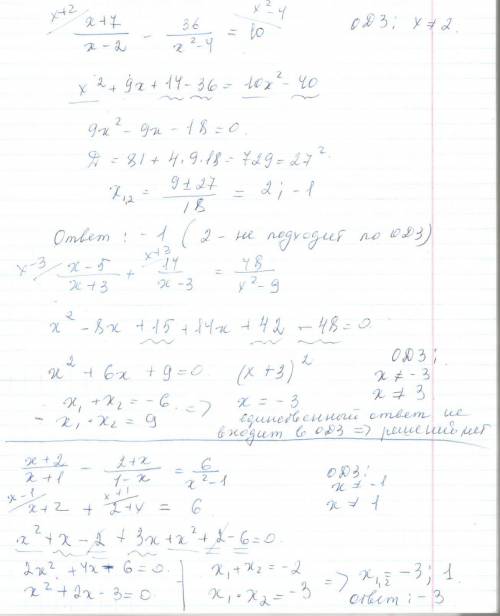 x+2/ (x+7)/(x-2) - 36/(x²-4) = x²-4/ 10    ОДЗ; x ≠ 2.
x² + 9x + 14 - 36 = 10x² - 40
9x² - 9x - 18 = 0.
Д = 81 + 4·9·18 = 729 = 27².
x₁,₂ = (9 ± 27)/18 = 2; -1
Ответ: -1 (2 - не подходит по ОДЗ)
x-3/ (x-5)/(x+3) + x+3/ 14/(x-3) = 48/(x²-9)
x² - 8x + 15 + 14x + 42 - 48 = 0
x² + 6x + 9 = 0. (x+3)²    ОДЗ;
x₁ + x₂ = -6 => x = -3    x ≠ -3
x₁ · x₂ = 9    x ≠ 3
единственный ответ не
входит в ОДЗ => решений нет
(x+2)/(x+1) - (2+x)/(1-x) = 6/(x²-1)    ОДЗ;
x ≠ -1
x-1/ x+2 + x+1/ 2+x = 6    x ≠ 1
x² + x - 2 + 3x + x² + 2 - 6 = 0.
2x² + 4x - 6 = 0. | x₁ + x₂ = -2 => x₁,₂ = -3; 1.
x² + 2x - 3 = 0. | x₁ · x₂ = -3    ответ: -3